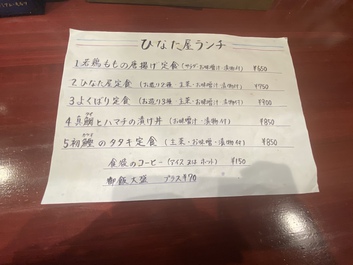 ひなた屋ランチ
1 若鶏ももの唐揚げ定食 (サラダ・お味噌汁・漬物付) ¥650
2 ひなた屋定食 (お造り2種・主菜・お味噌汁・漬物付) ¥750
3 よくばり定食 (お造り3種・主菜・お味噌汁・漬物付) ¥900
4 真鯛とハマチの漬け丼 (お味噌汁・漬物付) ¥850
5 初鰹のタタキ定食 (主菜・お味噌汁・漬物付) ¥850
食後のコーヒー (アイス又はホット) ¥150
御飯大盛 プラス¥70